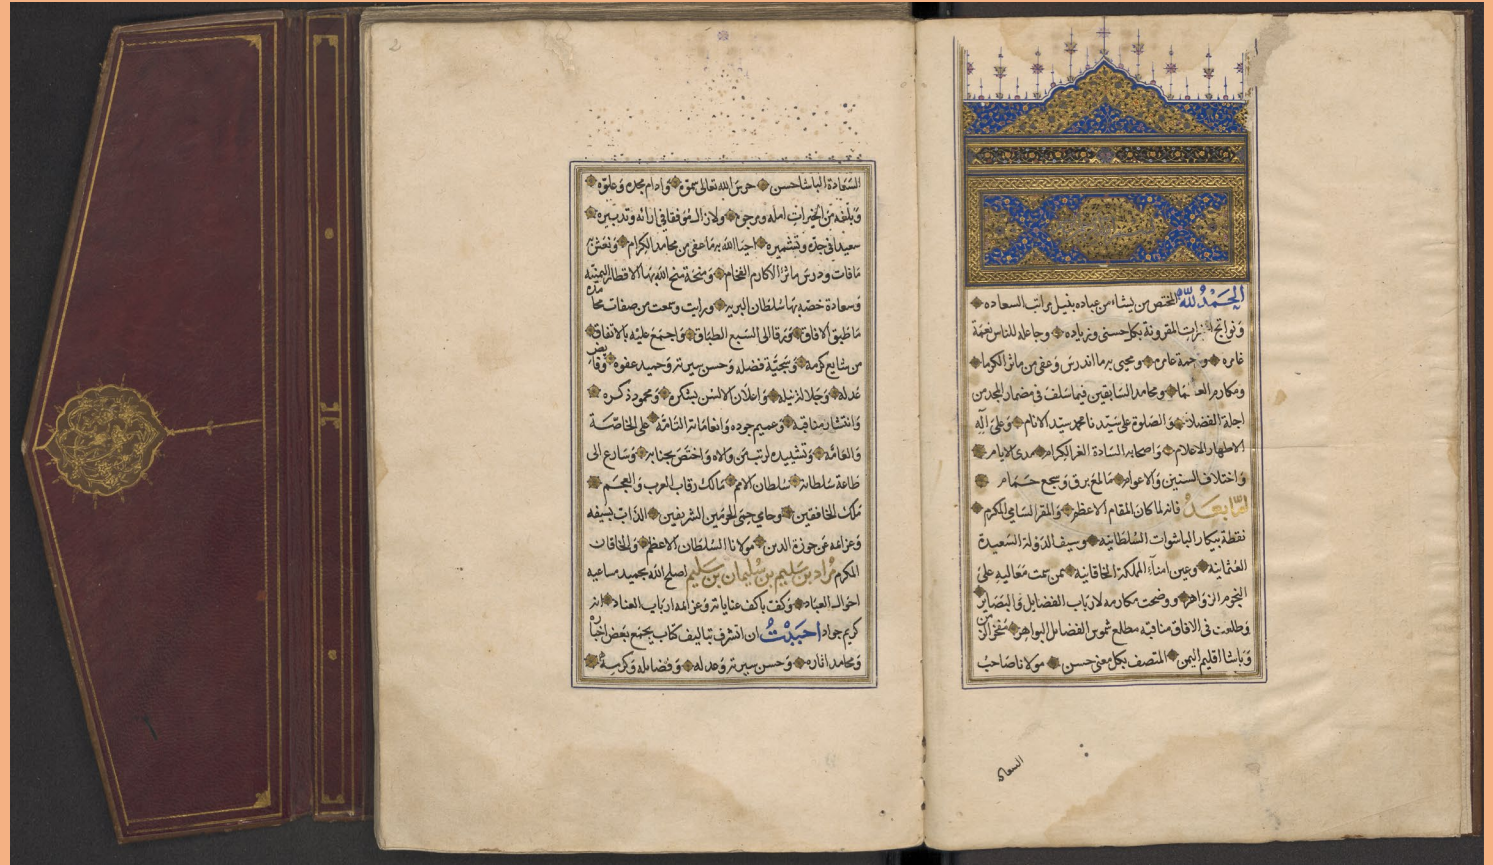 الحمد لله المختص من يشاء من عباده بنيل مراتب السعاده
المقرونة بكل حسنى وزياده وجاعله للناس نعمة
غامره ورحمة عامره ومحيى به ما اندرس وعفى من ماثر الكرما
ومكارم العظما ومحامد السابقين فيما سلف فى مضمار المجد من
اجلة الفضلا والصلوة على سيدنا محمد سيد الانام وعلى آله
الاطهار الاعلام واصحابه السادة الغر الكرام مدى الايام
واختلاف السنين والاعوام مالمع برق وسجع حمام
اما بعد فانه لما كان المقام الاعظم والمقر السامي المكرم
نقطة بيكار الباشوات السلطانيه وسيف الدولة السعيدة
العثمانيه وعين امناء المملكة الخاقانيه من سمت معاليه على
النجوم الزواهر ووضحت مكارمه لارباب الفضايل والبصاير
وطلعت فى الافاق مناقبه مطلع شموس الفضايل البواهر
وباشا اقليم اليمن المتصف بكل معنى حسن مولانا صاحب
السعادة
السعادة الباشا حسن حرس الله تعالى سموه وادام مجده وعلوه
وبلغه من الخيرات امله ومرجوه ولازال موفقا في ارائه وتدبيره
سعيدا في جده وتشميره احيا الله به ما عفى من محامد الكرام
مافات ودرس ماثر الاكارم الفخام ومنحة منح الله بها الاقطار اليمنيه
وسعادة خصه بها سلطان البريه ورايت وسمعت من صفات محامده
ماطبق الافاق ورقا الى السبع الطباق واجمع عليه بالاتفاق
من شايع كرمه وسجية فضله وحسن سيرته وحميد عفوه
عدله واعلان الالسن بشكره ومحمود ذكره
وانتشار مناقبه وعميم جوده وانعاماته التامة على الخاصة
والعامه واختص بجنابه وسارع الى
طاعة سلطانه سلطان الامم مالك رقاب العرب والعجم
ملك الخافقين وحامي حمى الحرمين الشريفين الذاب بسيفه
وعزايمه عن حوزة الدين مولانا السلطان الاعظم والخاقان
المكرم مراد بن سليم بن سليمان بن سليم اصلح الله بحميد مساعيه
احوال العباد وكفت باكف عناياته وعزايمه ارباب العناد انه
كريم جواد احببت ان اتشرف بتاليف كتاب يجمع بعض اخباره
ومحامد اثاره وحسن سيرته وعدله وفضايله وكرمه
2